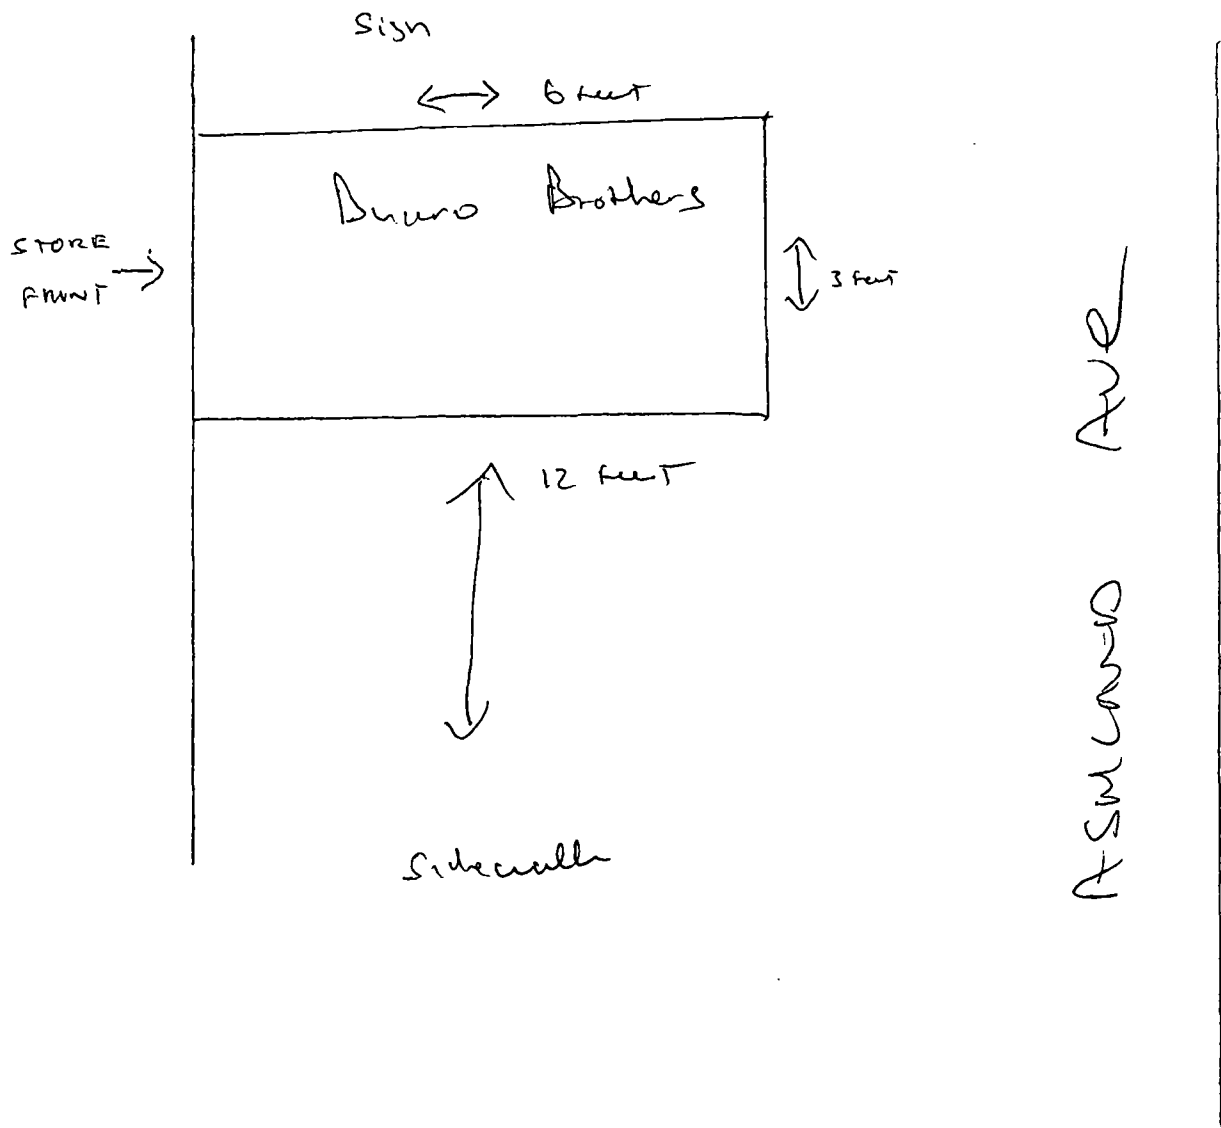 Sign
6 feet
Brothers
STORE
FRONT
3 feet
12 feet
Sidewalk
ASHLAND AVE